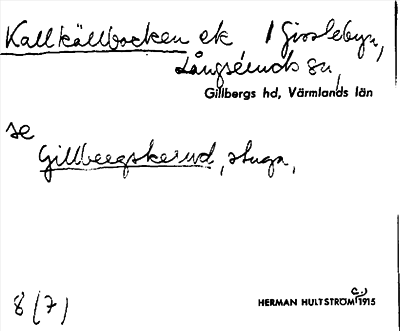 Kallkällbacken ek /Gisslebyn,
Långseruds sn,
Gillbergs hd, Värmlands län
se
Gillbergskerud, stuga,
8 (7)
HERMAN HULTSTRÖM (c.) 1915